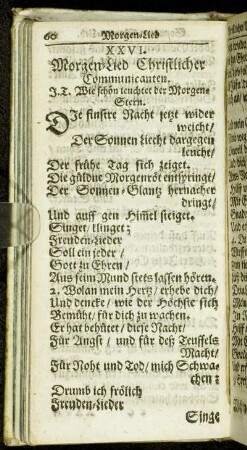 60 Morgen-Lied
XXVI.
Morgen-Lied Christlicher
Communicanten.
J.T. Wie schön leuchtet der Morgen-
Stern.
DJe finstre Nacht jetzt wider
weicht/
Der Sonnen Liecht dargegen
leucht/
Der frühe Tag sich zeiget.
Die güldne Morgenröt entspringt/
Der Sonnen-Glantz hernacher
dringt/
Und auff gen Himel steiget.
Singet/ klinget;
Freuden-Lieder
Soll ein jeder/
Gott zu Ehren/
Aus seim Mund stets lassen hören.
2. Wolan mein Hertz/ erhebe dich/
Und dencke/ wie der Höchste sich
Bemüht/ für dich zu wachen.
Er hat behütet/ diese Nacht/
Für Angst/ und für deß Teuffels
Macht/
Für Noht und Tod/ mich Schwa-
chen:
Drumb ich frölich
Freuden-Lieder
Singe